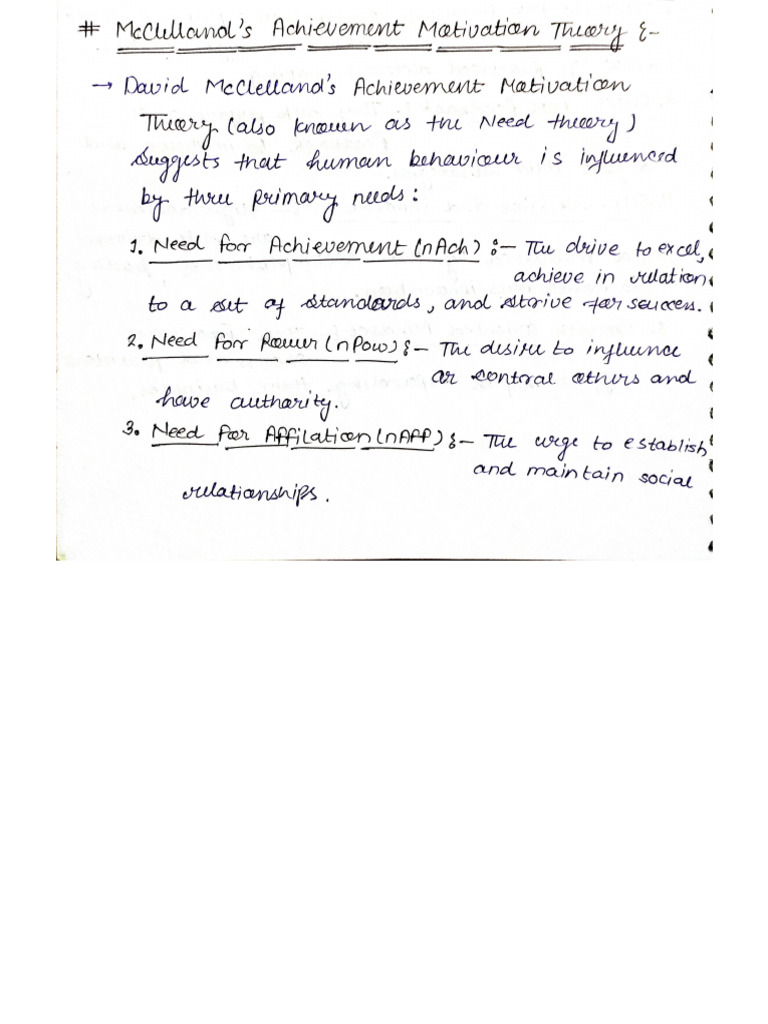 # McClelland's Achievement Motivation Theory :-
→ David McClelland's Achievement Motivation
Theory (also known as the Need theory)
Suggests that human behaviour is influenced
by three primary needs:
1. Need for Achievement (nAch) :- The drive to excel,
achieve in relation
to a set of standards, and strive for success.
2. Need for Power (nPow) :- The desire to influence
or control others and
have authority.
3. Need for Affilation (nAFF) :- The urge to establish
and maintain social
relationships.